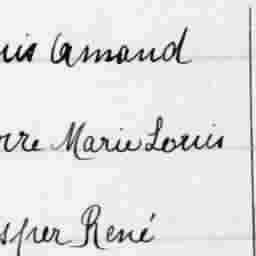 uis Armand
rre Marie Louis
sper René